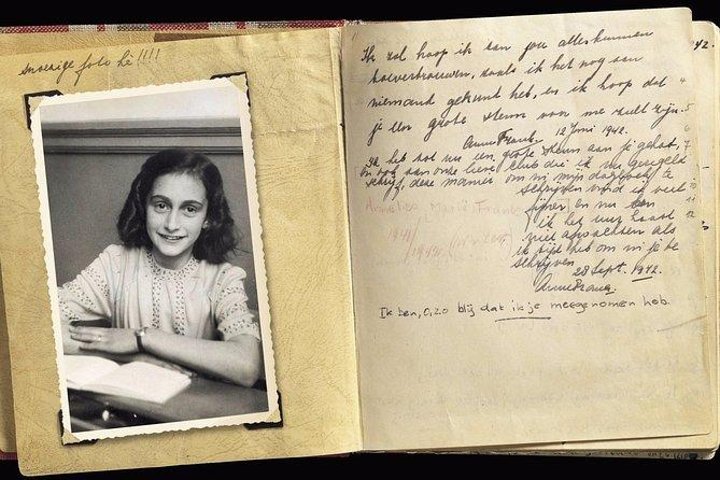 snoezige foto hè!!!!
Ik zal hoop ik aan jou alles kunnen
toevertrouwen, zoals ik het nog aan
niemand gekunt heb, en ik hoop dat
je een grote steun voor me zult zijn.
Anne Frank. 12 Juni 1942.
Ik heb tot nu een grote steun aan je gehad,
en ook aan onze lieve club die ik nu geregeld
schrijf, deze manier om in mijn dagboek te
schrijven vind ik veel
fijner en nu kan
ik het uur haast
niet afwachten als
ik tijd heb om in je te
schrijven.
28 Sept. 1942.
Anne Frank.
Ik ben, o, zo blij dat ik je meegenomen heb.
Annelies Marie Frank
42.